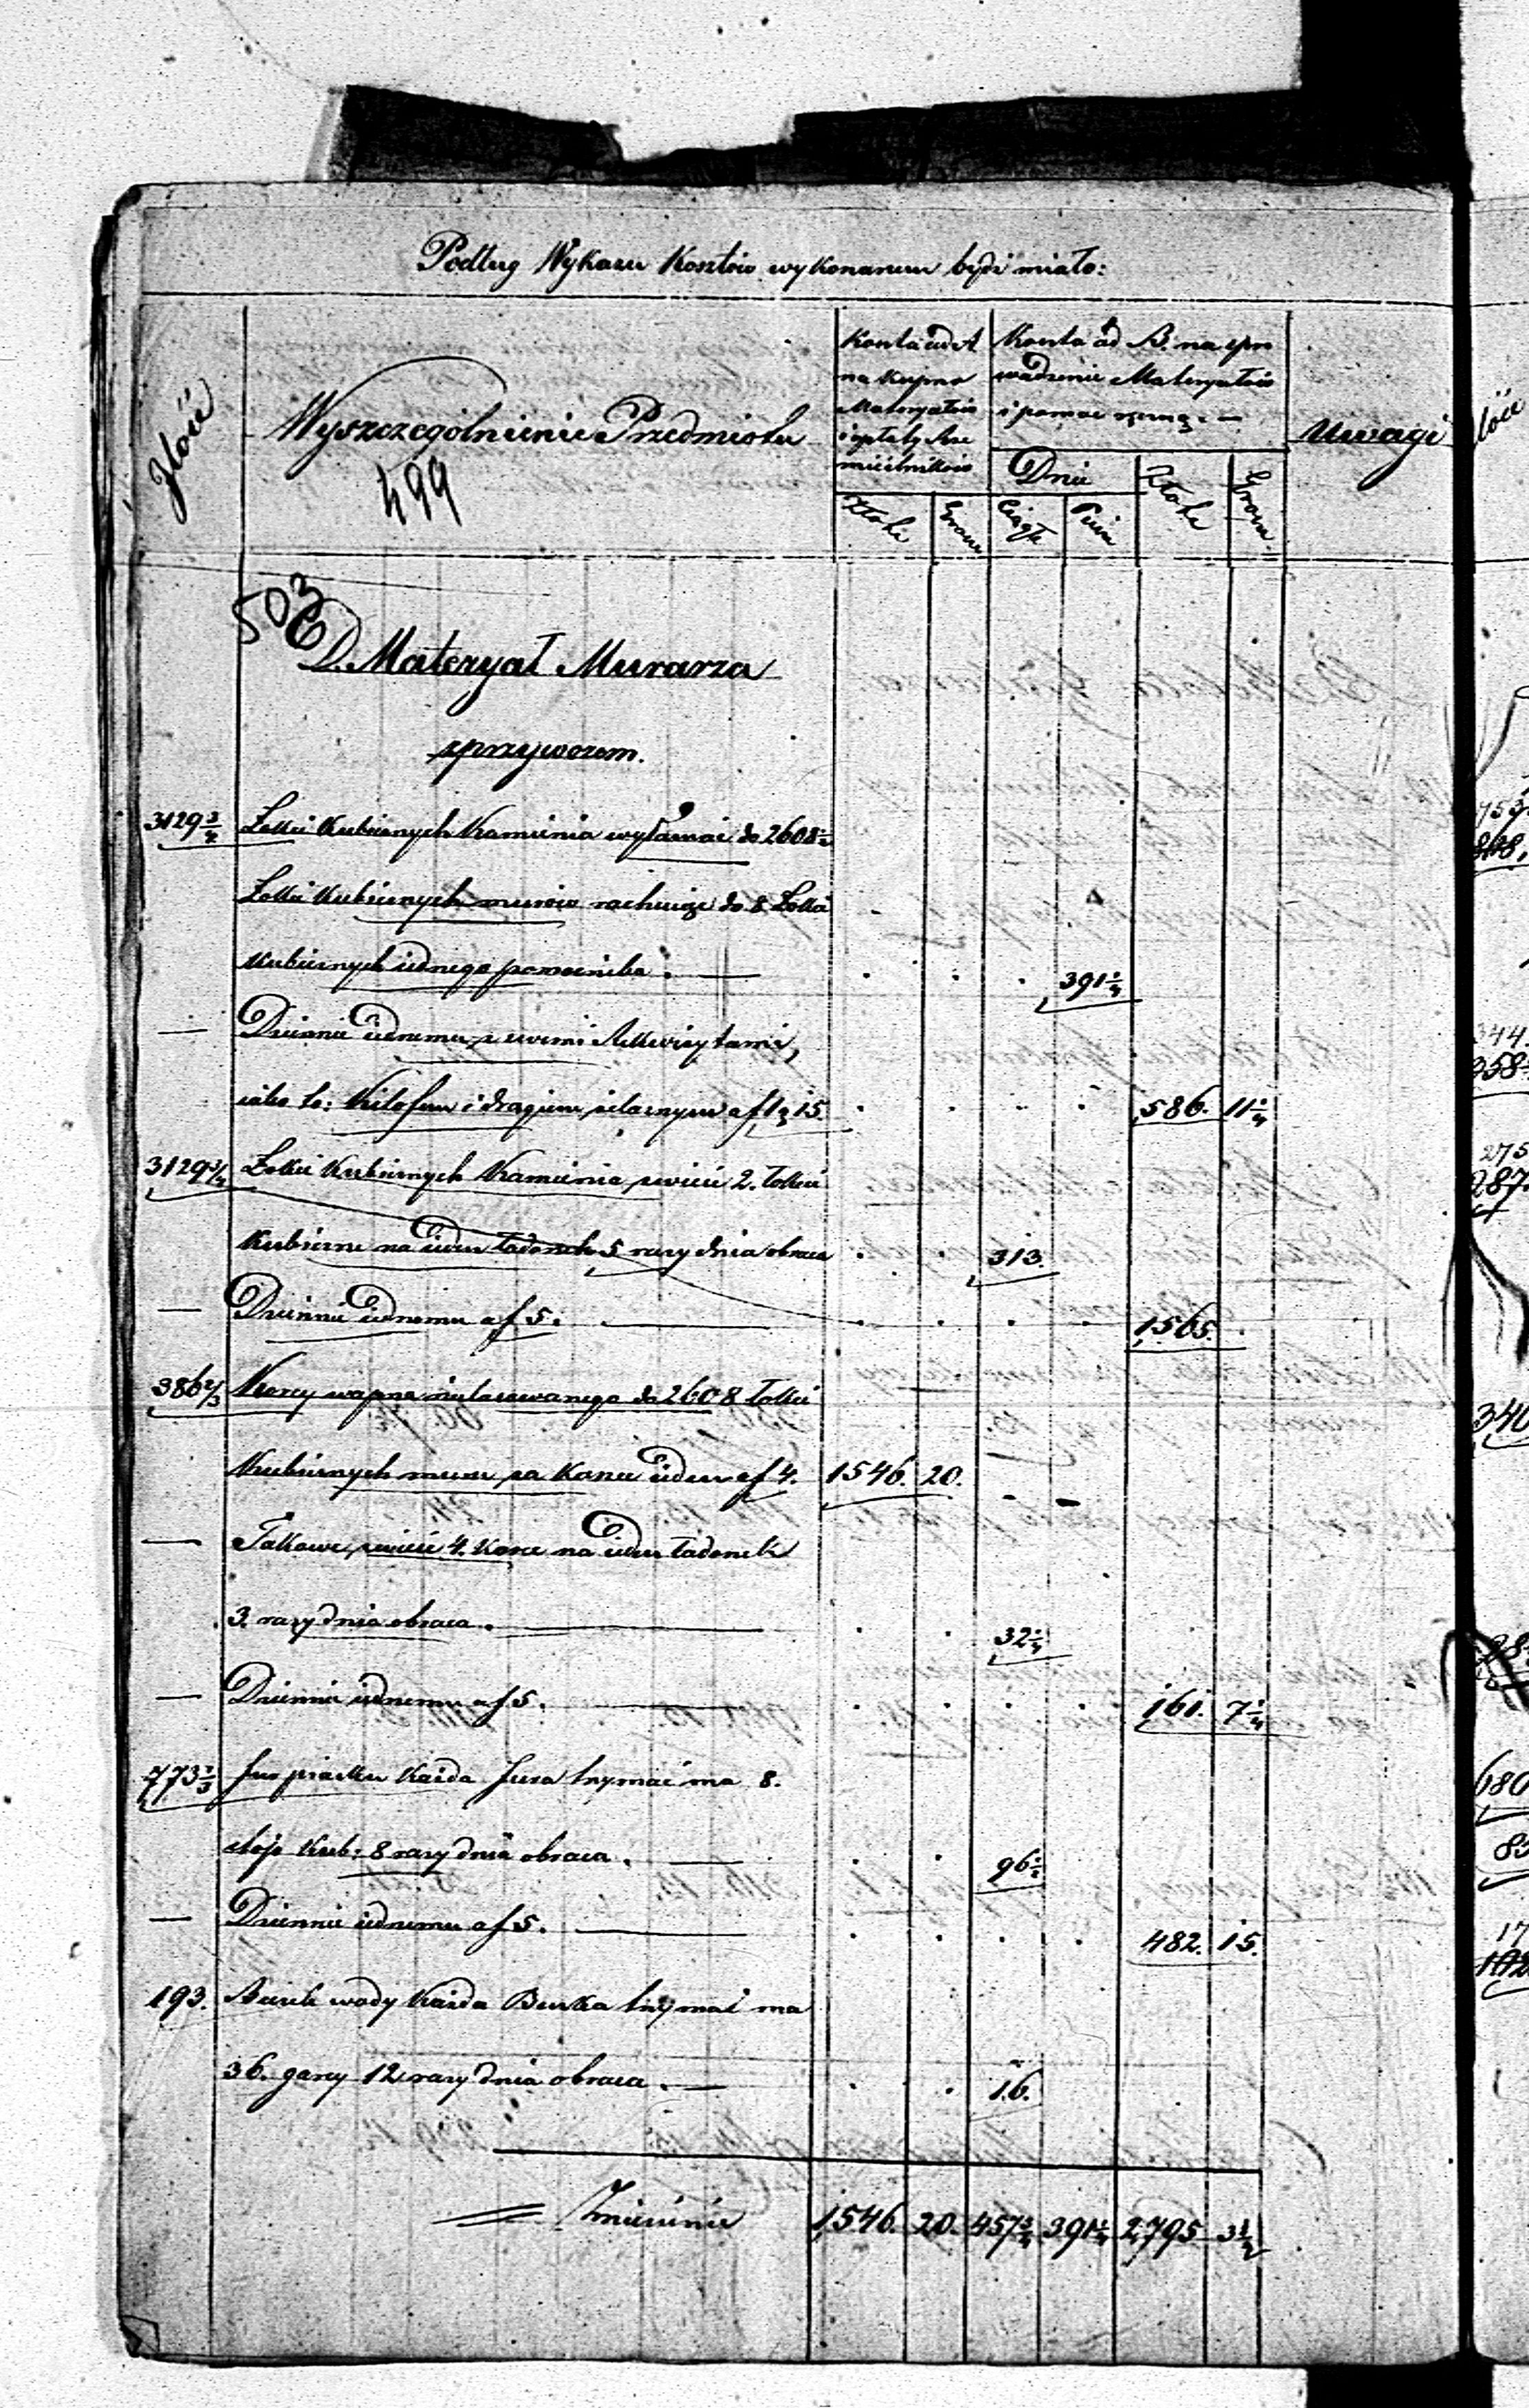 Podług Wykazu Kosztów wykonanem bydź miało:
Jlość
Wyszczególnienie Przedmiotu
499
Koszta ad A.
na kupno
Materyałów
i opłatę Rze
mieślników
Złote
Grosze
Koszta ad B. na spro
wadzenie Materyałów
i pomoc ręczną. —
Dnie
Ciągłe
Piesze
Złote
Grosze
Uwagi
503
D. Materyał Murarza
z przywozem.
3129 3/4 Łokci Kubicznych Kamienia wyłamać do 2608
Łokci Kubicznych murów rachuiąc do 8 Łokci
Kubicznych iednego pomocnika. — 391 1/4
— Dziennie iednemu z swemi Rekwizytami,
iako to: Kilofem i drągiem żelaznym a f 1 g 15. 586. 11 1/4
3129 3/4 Łokci Kubicznych Kamienia zwieść 2. łokci
Kubiczne na ieden ładunek 5 razy dnia obraca 313.
— Dziennie iednemu a f 5. — 1565.
386 2/3 Korcy wapna nielasowanego do 2608 łokci
Kubicznych muru za Korzec ieden a f 4. 1546. 20.
— Takowe zwieść 4. Korce na ieden ładunek
3. razy dnia obraca. — 32 1/4
— Dziennie iednemu a f 5. — 161. 7 1/4
773 1/3 fur piasku Każda fura trzymać ma 8.
stop Kub: 8 razy dnia obraca. — 96 1/2
— Dziennie iednemu a f 5. — 482. 15.
193. Beczek wody Każda Beczka trzymać ma
36. garcy 12 razy dnia obraca. — 16.
Zniesienie 1546. 20. 457 3/4 391 1/4 2795 3 1/2